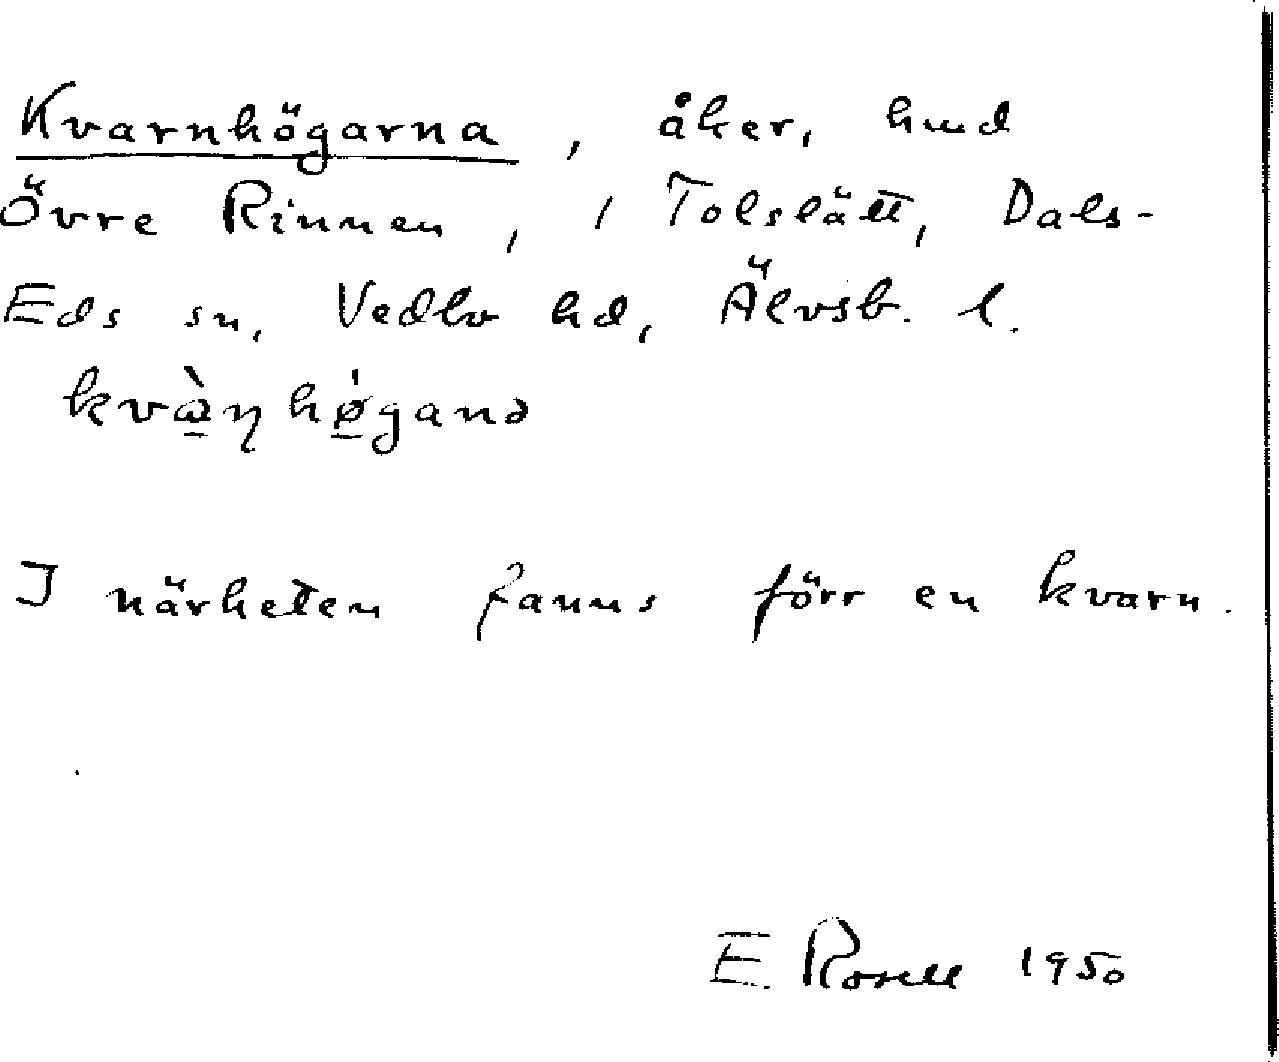 Kvarnhögarna, åker, hmd
Övre Rinnen, / Tolslätt, Dals-
Eds sn, Vedbo hd, Älvsb. l.
I närheten fanns förr en kvarn.
E. Rosell 1950